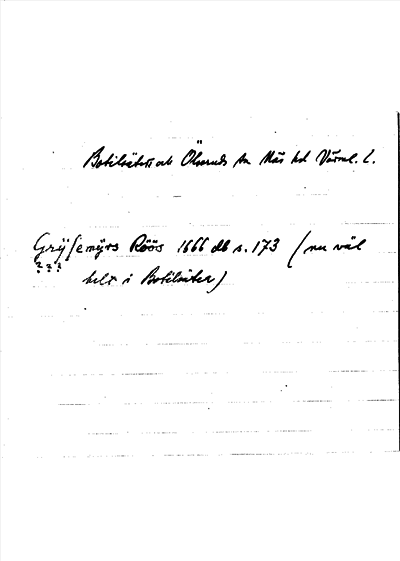 Botilsäters och Ölseruds sn Näs hd Värml. l.
Gryſemyrs Röös 1666 db s. 173 (nu väl
? ? ?
helt i Botilsäter)